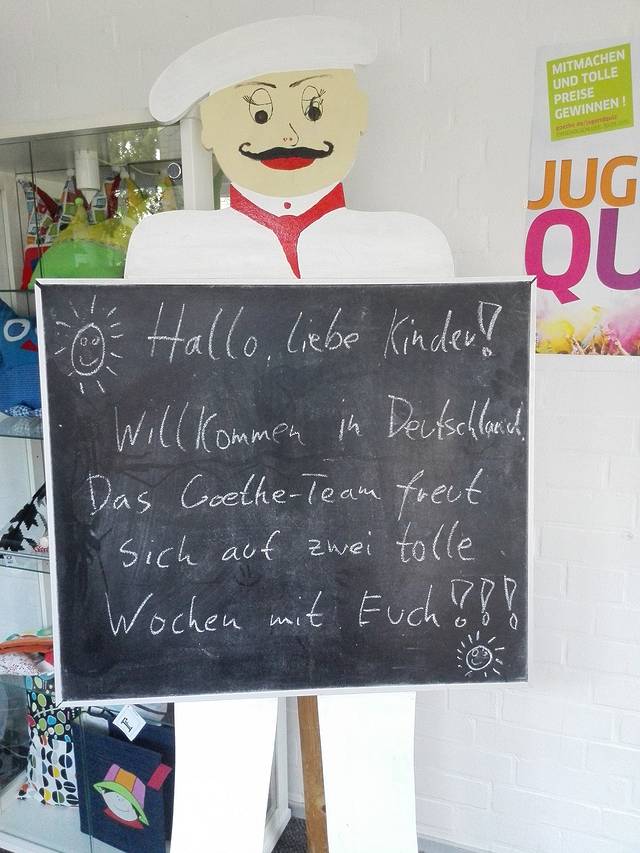 MITMACHEN
UND TOLLE
PREISE
GEWINNEN !
JUG
QU
Hallo, liebe Kinder!
Willkommen in Deutschland.
Das Goethe-Team freut
sich auf zwei tolle
Wochen mit Euch!!!